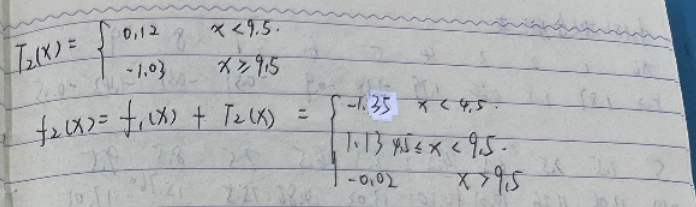 T₂(x) = { 0.12 x < 9.5.
-1.03 x ≥ 9.5
f₂(x) = f₁(x) + T₂(x) = { -1.35 x < 4.5.
1.13 4.5 ≤ x < 9.5.
-0.02 x > 9.5